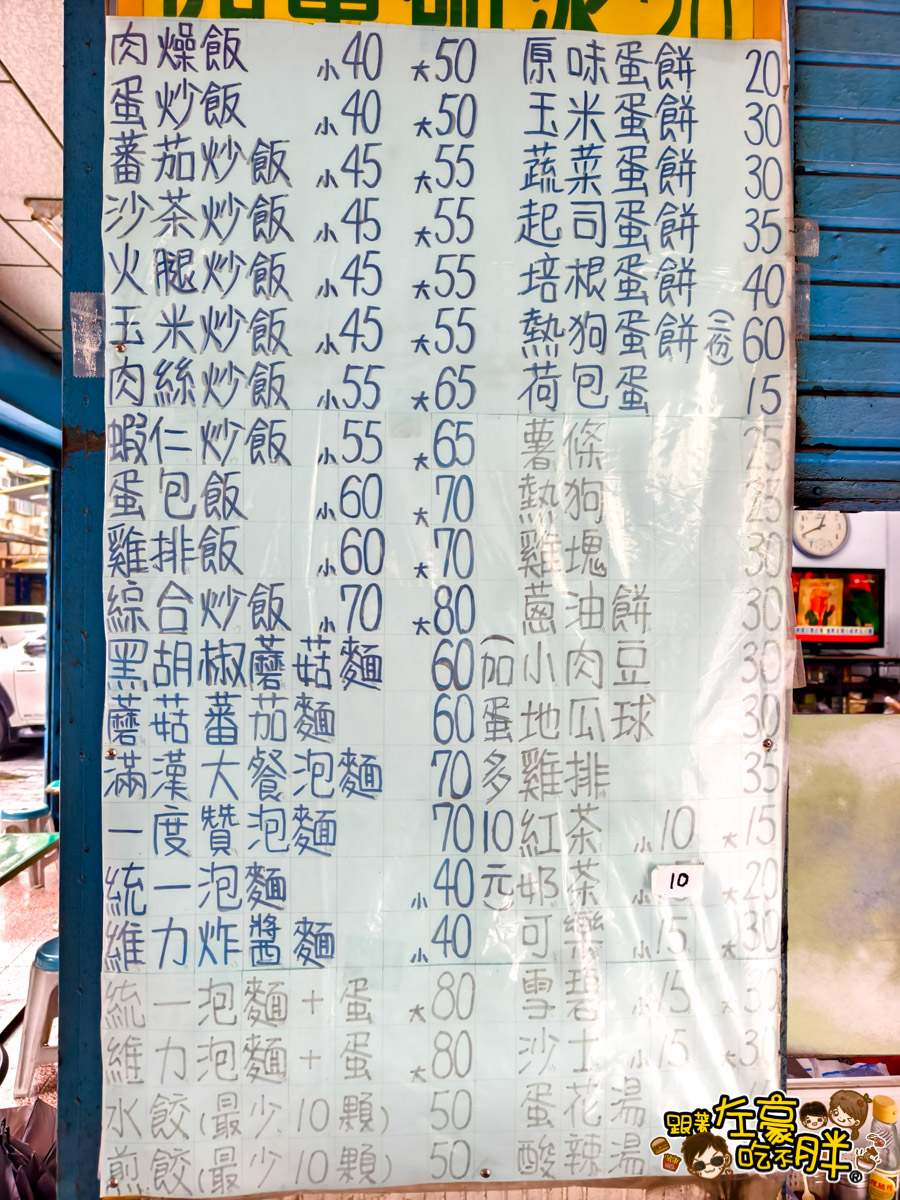 肉燥飯 小40 大50
蛋炒飯 小40 大50
蕃茄炒飯 小45 大55
沙茶炒飯 小45 大55
火腿炒飯 小45 大55
玉米炒飯 小45 大55
肉絲炒飯 小55 大65
蝦仁炒飯 小55 大65
蛋包飯 小60 大70
雞排飯 小60 大70
綜合炒飯 小70 大80
黑胡椒蘑菇麵 60
蘑菇蕃茄麵 60
滿漢大餐泡麵 70
一度贊泡麵 70
統一泡麵 小40
維力炸醬麵 小40
(加蛋多10元)
統一泡麵+蛋 大80
維力泡麵+蛋 大80
水餃(最少10顆) 50
煎餃(最少10顆) 50
原味蛋餅 20
玉米蛋餅 30
蔬菜蛋餅 30
起司蛋餅 35
培根蛋餅 40
熱狗蛋餅(二份) 60
荷包蛋 15
薯條 25
熱狗 25
雞塊 30
蔥油餅 30
小肉豆 30
地瓜球 30
雞排 35
紅茶 小10 大15
奶茶 小10 大20
可樂 小15 大30
雪碧 小15 大30
沙士 小15 大30
蛋花湯
酸辣湯
跟著左豪吃不胖®